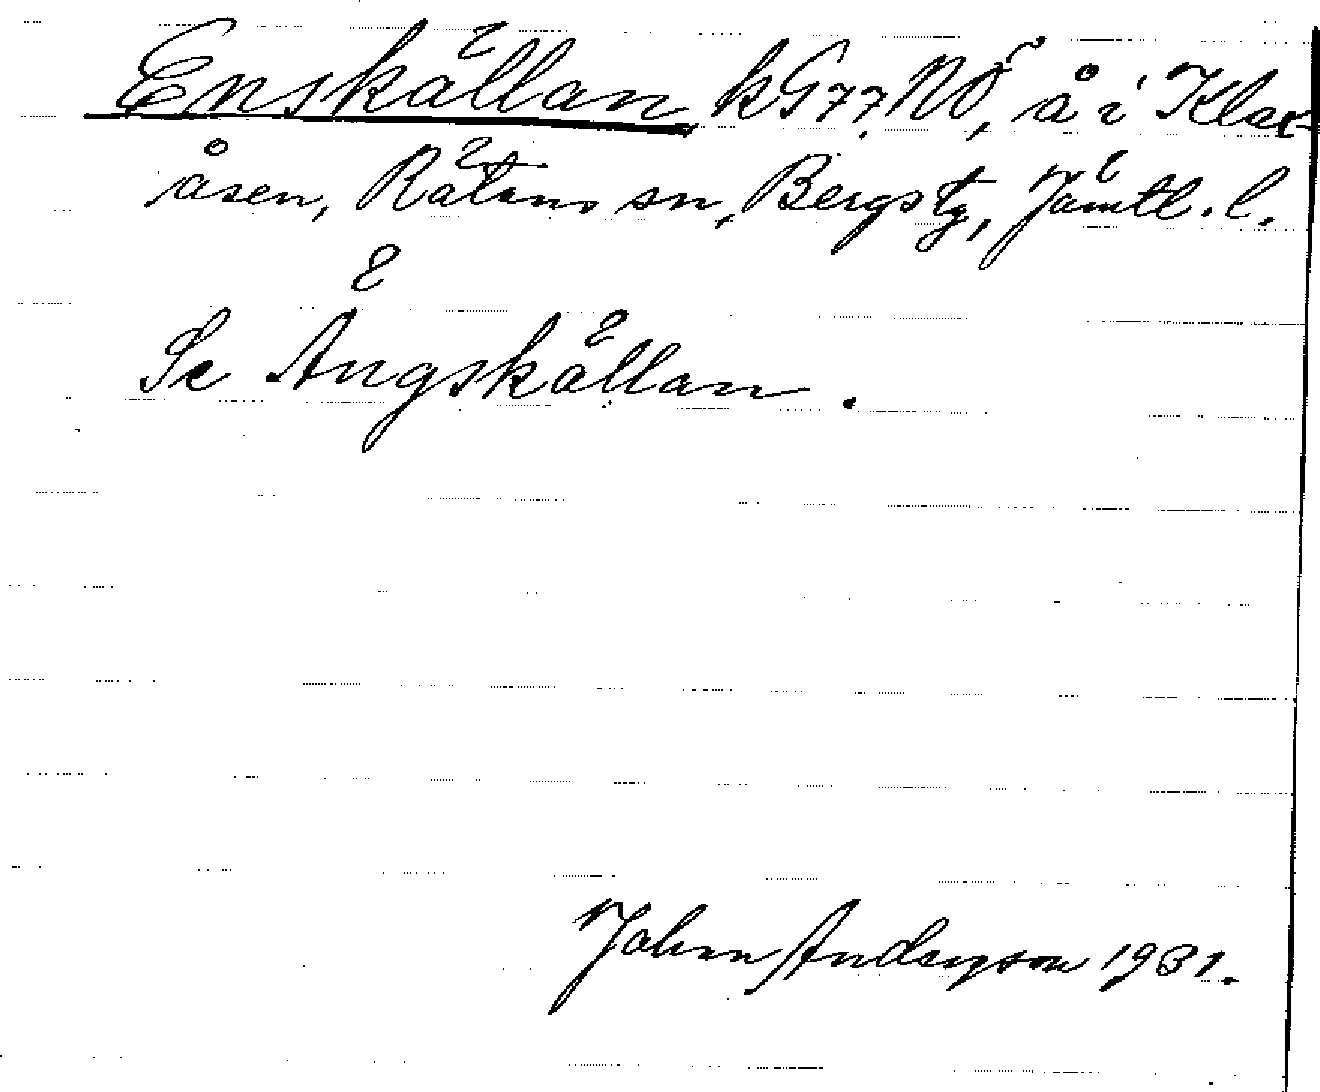 Enskällan, kG77, NÖ, å i Klax-
åsen, Rätans sn, Bergs tg, Jämtl. l.
Se Ängskällan.
Johan Andersson 1931.